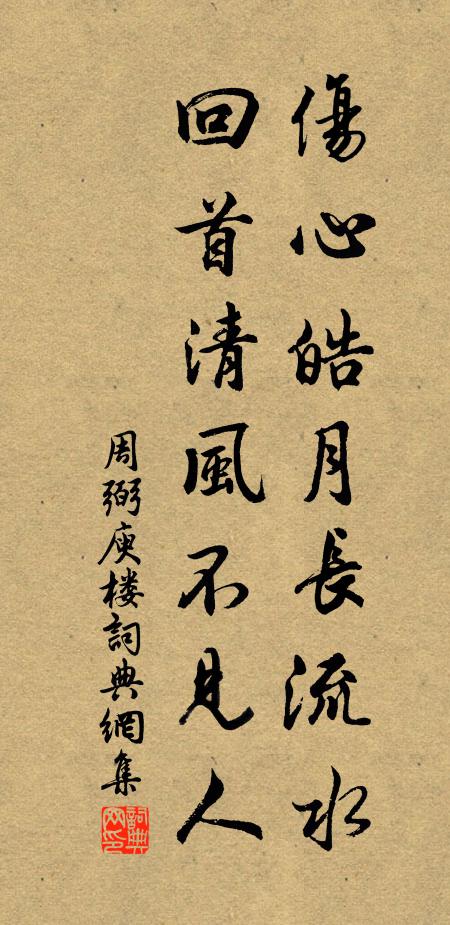 傷心皓月長流水
回首清風不見人
周弼庾楼詞典網集
詞典网印